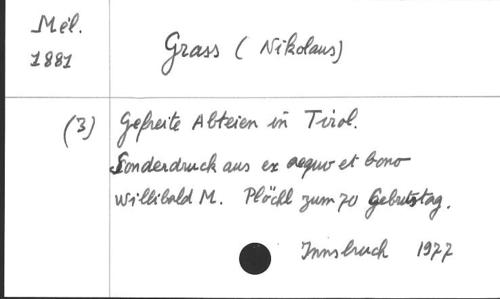 Mél.
1881
Grass (Nikolaus)
(3) Gefreite Abteien in Tirol.
Sonderdruck aus ex aequo et bono
Willibald M. Plöchl zum 70 Geburtstag.
Innsbruck 1977